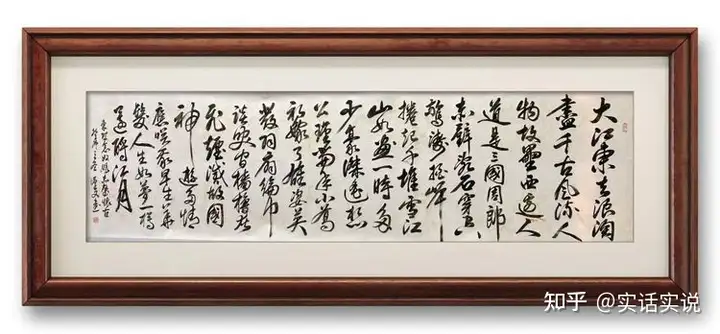 大江東去浪淘
盡千古風流人
物故壘西邊人
道是三國周郎
赤壁亂石穿空
驚濤拍岸
捲起千堆雪江
山如畫一時多
少豪傑遙想
公瑾當年小喬
初嫁了雄姿英
發羽扇綸巾
談笑間檣櫓灰
飛煙滅故國
神遊多情
應笑我早生華
髮人生如夢一樽
還酹江月
念奴嬌赤壁懷古
知乎 @实话实说